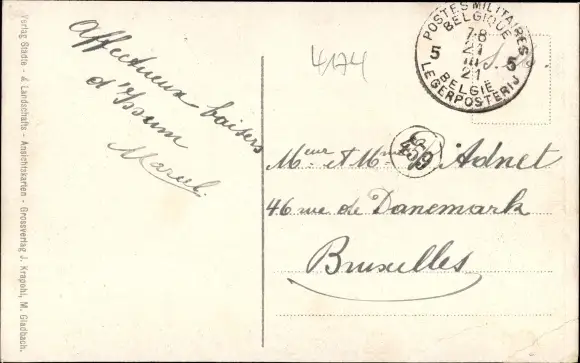 Verlag Städte - & Landschafts - Ansichtskarten - Grossverlag J. Krapohl, M. Gladbach.
Affectueux baisers
d'Issum
Marcel.
4174
POSTES MILITAIRES
BELGIQUE
5 5
21
III
21
BELGIË
LEGERPOSTERIJ
S.M.
Meur et Mme Adnet
46 rue de Danemark
Bruxelles